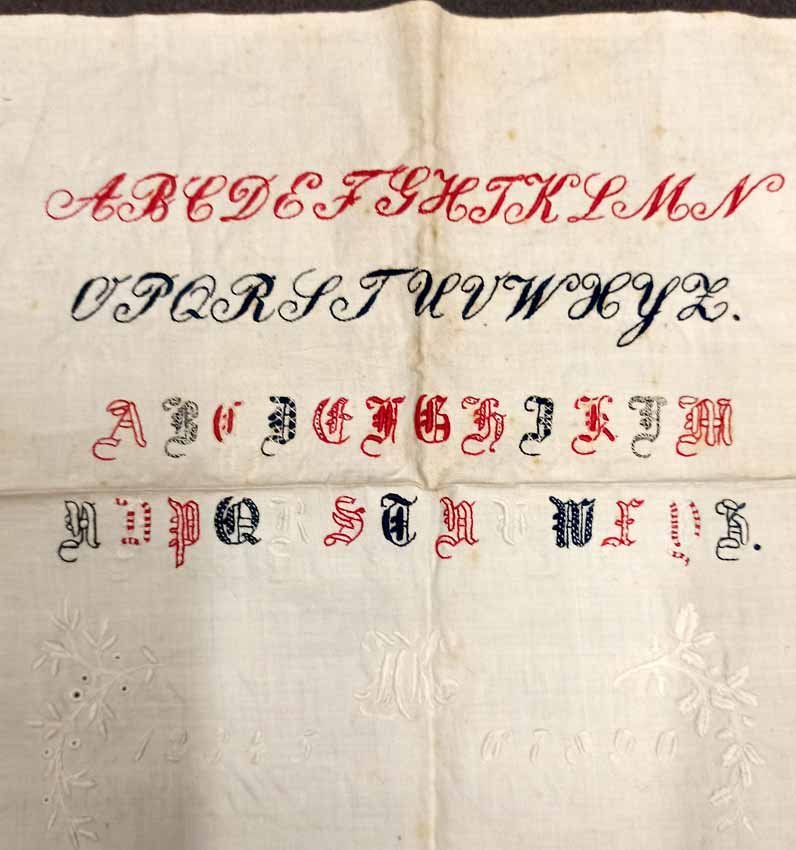 A B C D E F G H I K L M N
O P Q R S T U V W X Y Z.
A B C D E F G H I K L M
N O P Q R S T U V W X Y Z.
1 2 3 4 5 6 7 8 9 0